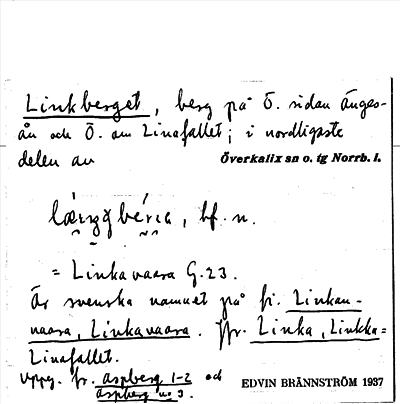 Linkberget, berg på Ö. sidan Änges-
ån och Ö. om Linafallet; i nordligaste
delen av Överkalix sn o. tg Norrb. l.
bf. n.
= Linkavaara G. 23.
Är svenska namnet på fi. Linkan-
vaara, Linkavaara. Jfr. Linka, Linkka=
Linafallet.
Uppg. fr. Aspberg 1-2 och
Aspberg n:o 3.
EDVIN BRÄNNSTRÖM 1937